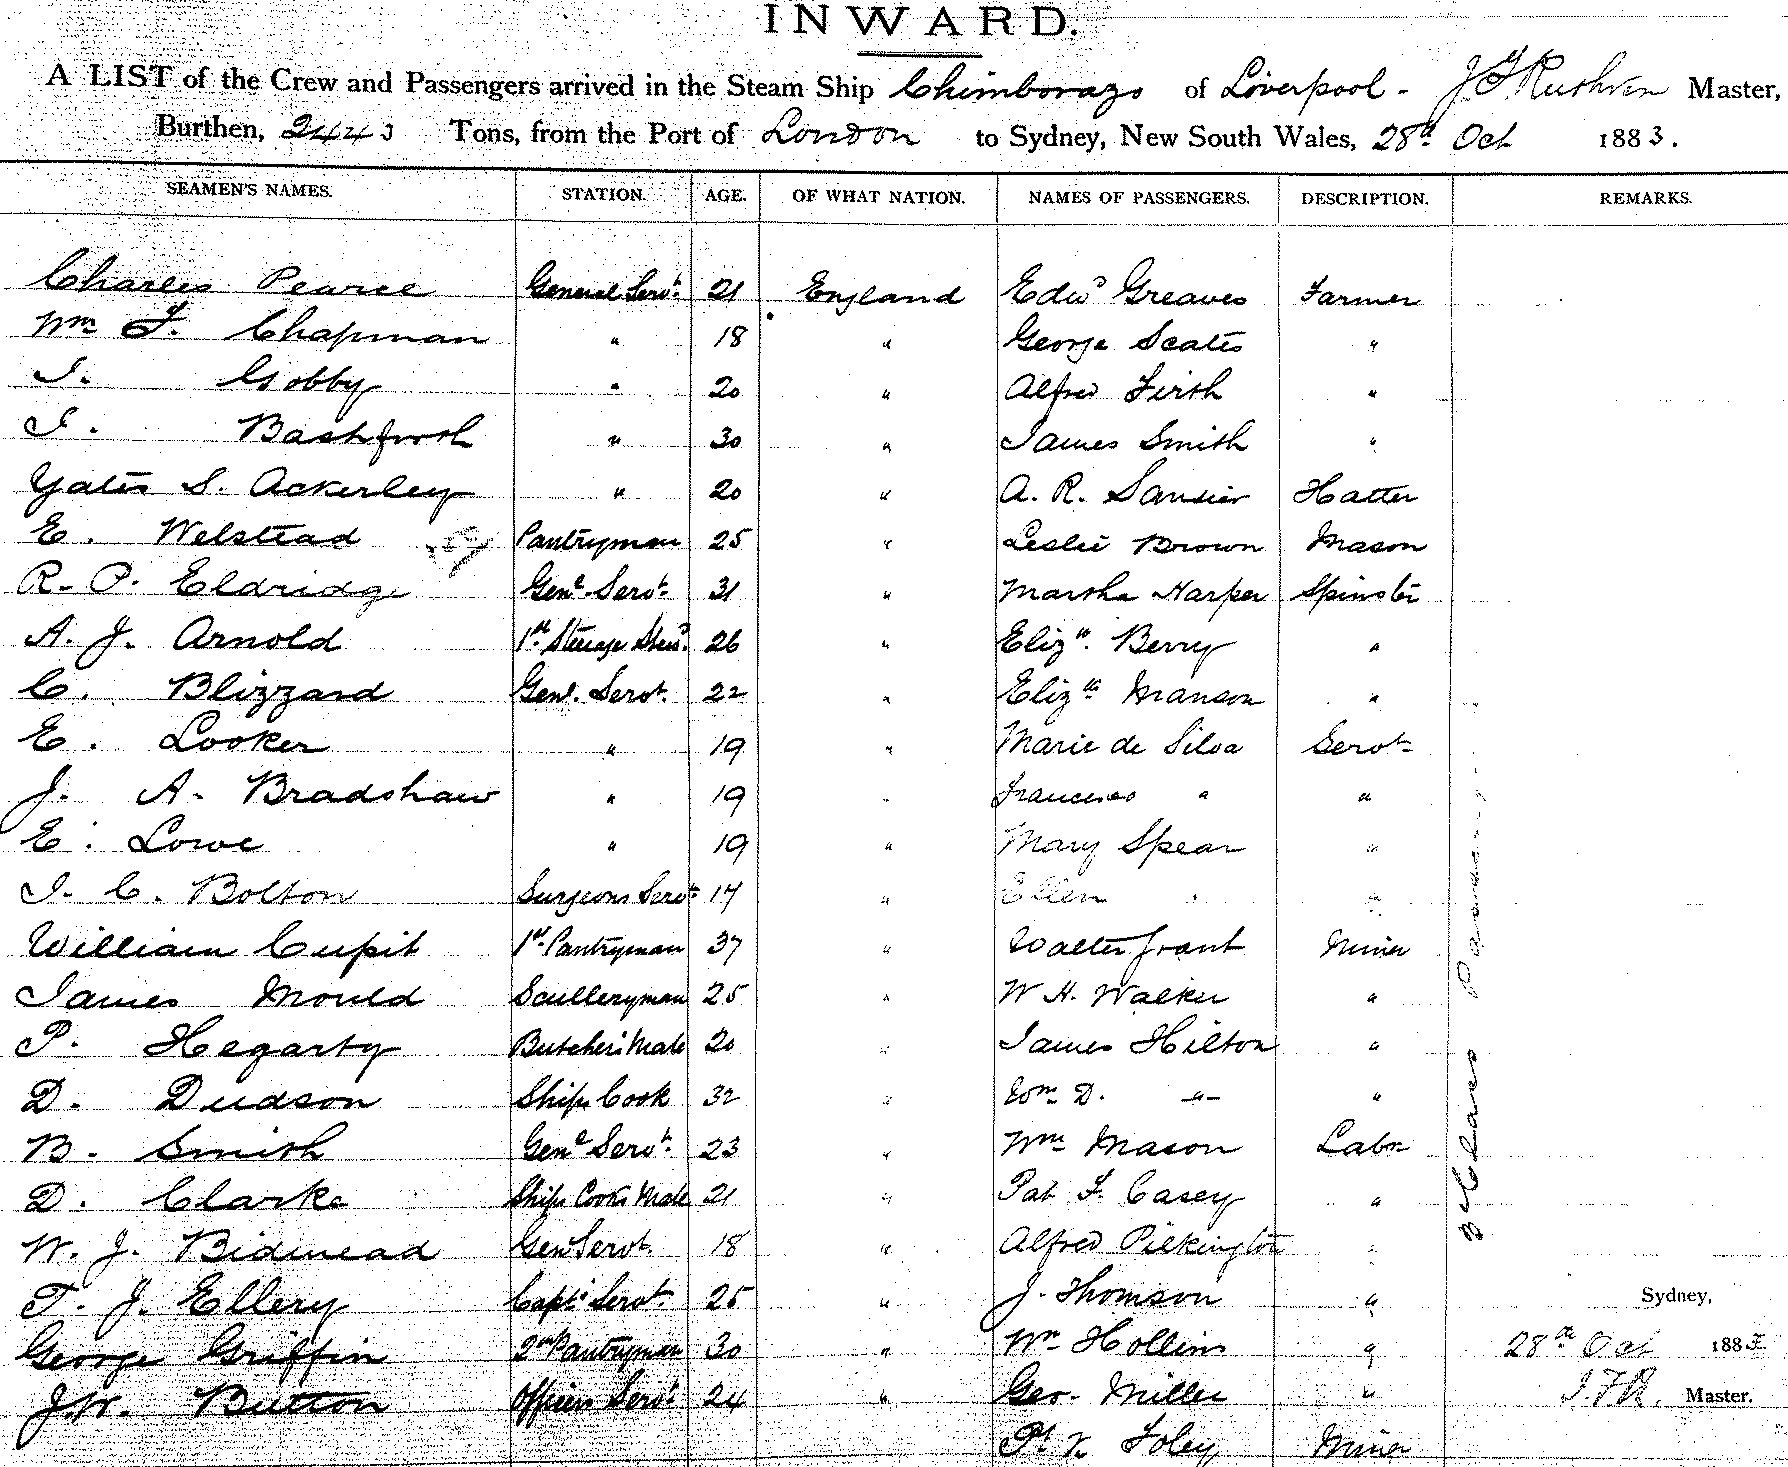 INWARD.
A LIST of the Crew and Passengers arrived in the Steam Ship Chimborazo of Liverpool - J F Ruthven Master,
Burthen, 2443 Tons, from the Port of London to Sydney, New South Wales, 28th Oct 1883.
SEAMEN'S NAMES. STATION. AGE. OF WHAT NATION. NAMES OF PASSENGERS. DESCRIPTION. REMARKS.
Charles Pearce General Servt. 21 England Edwd Greaves Farmer
Wm F. Chapman " 18 " George Scates "
J. Gobby " 20 " Alfred Firth "
J. Bashforth " 30 " James Smith "
Yates S. Ackerley " 20 " A. R. Hatter
E. Welstead Pantryman 25 " Leslie Brown Mason
R. P. Eldridge Genl. Servt. 31 " Martha Harper Spinster
A. J. Arnold 1st Steerage Stewd. 26 " Elizth. Berry "
C. Blizzard Genl. Servt. 22 " Elizth Manson "
E. Looker " 19 " Marie de Silva Servt
J. A. Bradshaw " 19 " Francisco " "
E. Lowe " 19 " Mary Spear "
J. C. Bolton Surgeons Servt 17 " Ellen " "
William Cupit 1st Pantryman 37 " Walter Grant Miner
James Mould Sculleryman 25 " W H. Walker "
P. Hegarty Butchers Mate 20 " James Hilton "
D. Dudson Ships Cook 32 " Wm D. -"- "
B. Smith Genl Servt. 23 " Wm Mason Labr
D. Clarke Ships Cooks Mate 21 " Pat F. Casey "
W. J. Bidmead Genl Servt. 18 " Alfred Pilkington "
T. J. Ellery Capts Servt. 25 " J. Thomson "
George Griffin 2nd Pantryman 30 " Wm Hollins "
J. W. Button Officers Servt 24 " Geo. Miller "
Foley Miner
3rd Class Passengers
Sydney,
28th Oct 1883
J.F.R. Master.